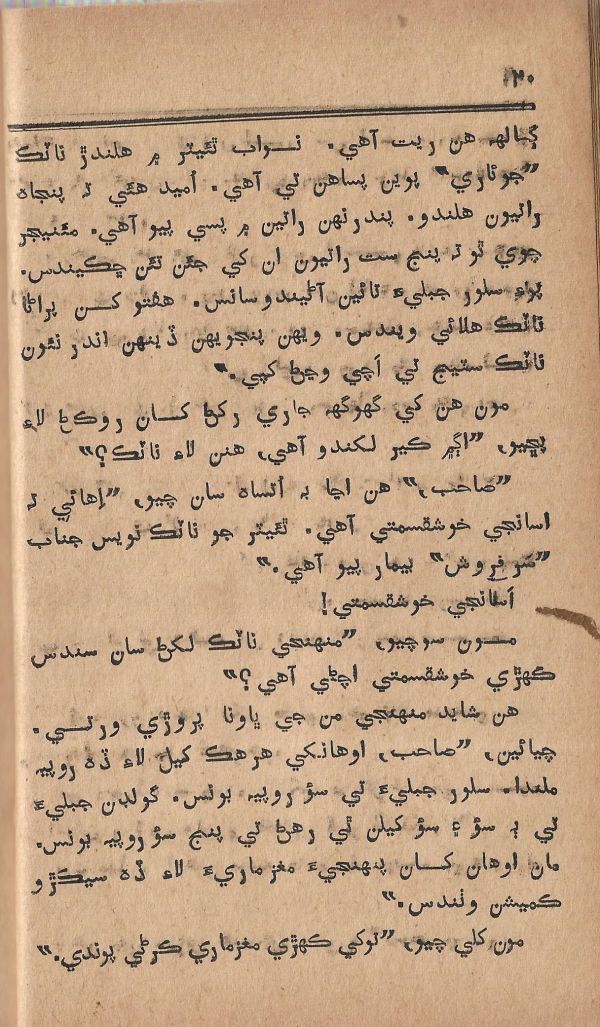 ۲۰
ڳالهہ هن ريت آهي. نواب ٿئيٽر ۾ هلندڙ ناٽڪ
”جوئاري“ پوين پساهن تي آهي. اُميد هئي تہ پنجاه
راتيون هلندو. پندرنهن راتين ۾ پسي پيو آهي. مئنيجر
چوي ٿو تہ پنج ست راتيون ان کي جئن تئن ڇڪيندس.
پر سلور جبليءَ تائين آڻيندوسانس. هفتو کن پراڻا
ناٽڪ هلائي ويندس. ويهن پنجويهن ڏينهن اندر نئون
ناٽڪ سٽيج تي اَچي وڃڻ کپي.“
مون هن کي گهوگهہ جاري رکڻ کان روڪڻ لاءِ
پڇيو، ”اڳ۾ ڪير لکندو آهي، هنن لاءِ ناٽڪ؟“
”صاحب،“ هن اڃا بہ اُتساه سان چيو، ”اِهائي تہ
اسانجي خوشقسمتي آهي. ٿئيٽر جو ناٽڪ نويس جناب
”سَرفروش“ بيمار پيو آهي.“
اَسانجي خوشقسمتي!
مون سوچيو، ”منهنجي ناٽڪ لکڻ سان سندس
ڪهڙي خوشقسمتي اچڻي آهي؟“
هن شايد منهنجي من جي ڀاونا پروڙي ورتي.
چيائين، ”صاحب، اوهانکي هرهڪ کيل لاءِ ڏه روپيہ
ملندا. سلور جبليءَ تي سؤ روپيہ بونس. گولڊن جبليءَ
تي ٻہ سؤ ۽ سؤ کيلن ٿي رهڻ تي پنج سؤ روپيہ بونس.
مان اوهان کان پنهنجيءَ مغزماريءَ لاءِ ڏه سيڪڙو
ڪميشن وٺندس.“
مون کلي چيو، ”توکي ڪهڙي مغزماري ڪرڻي پوندي.“